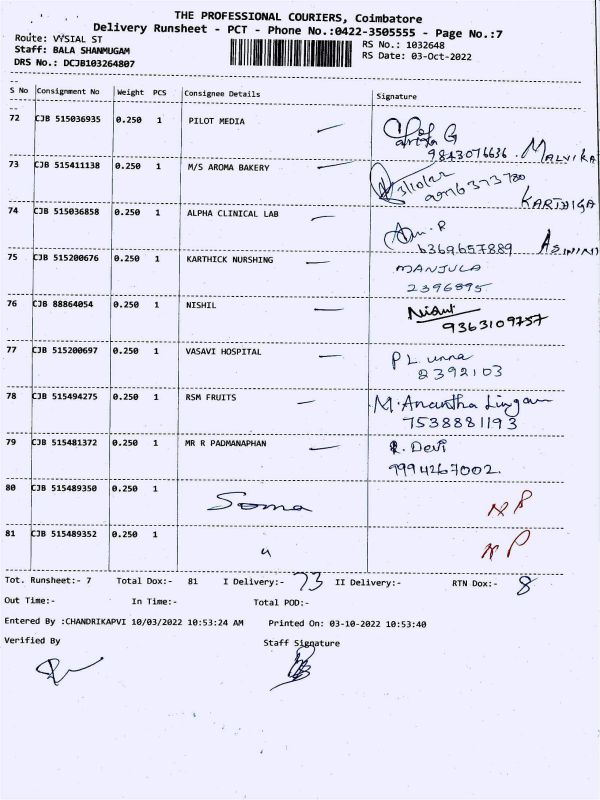 THE PROFESSIONAL COURIERS, Coimbatore
Delivery Runsheet - PCT - Phone No.:0422-3505555 - Page No.:7
Route: VYSIAL ST
RS No.: 1032648
Staff: BALA SHANMUGAM
RS Date: 03-Oct-2022
DRS No.: DCJB103264807
S No Consignment No Weight PCS Consignee Details Signature
72 CJB 515036935 0.250 1 PILOT MEDIA
9843076636. MALVIKA
73 CJB 515411138 0.250 1 M/S AROMA BAKERY 3/10/22
KARTHIGA
74 CJB 515036858 0.250 1 ALPHA CLINICAL LAB
6369657889
75 CJB 515200676 0.250 1 KARTHICK NURSHING MANJULA
2396895
76 CJB 88864054 0.250 1 NISHIL
9363109757
77 CJB 515200697 0.250 1 VASAVI HOSPITAL
2392103
78 CJB 515494275 0.250 1 RSM FRUITS M. Anantha Lingam
7538881193
79 CJB 515481372 0.250 1 MR R PADMANAPHAN R. Devi
9994267002.
80 CJB 515489350 0.250 1 Soma NP
81 CJB 515489352 0.250 1 " NP
Tot. Runsheet:- 7 Total Dox:- 81 I Delivery:- 73 II Delivery:- RTN Dox:- 8
Out Time:- In Time:- Total POD:-
Entered By :CHANDRIKAPVI 10/03/2022 10:53:24 AM Printed On: 03-10-2022 10:53:40
Verified By Staff Signature